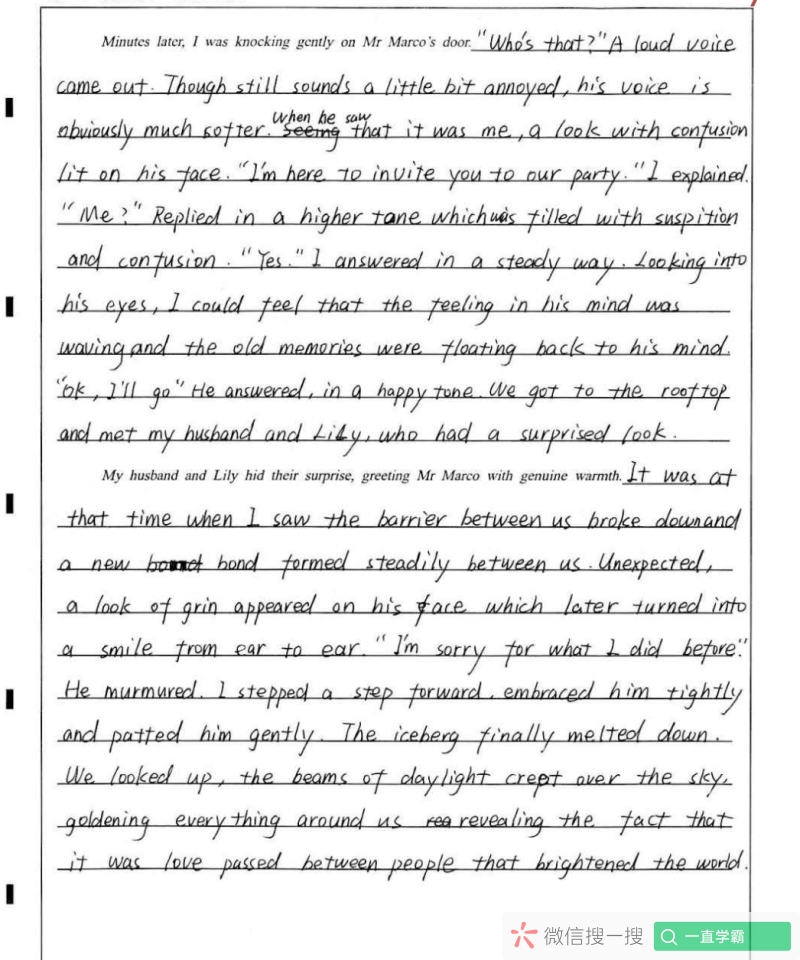 Minutes later, I was knocking gently on Mr Marco's door. "Who's that?" A loud voice
came out. Though still sounds a little bit annoyed, his voice is
obviously much softer. Seeing When he saw that it was me, a look with confusion
lit on his face. "I'm here to invite you to our party." I explained.
"Me?" Replied in a higher tone which was filled with suspition
and confusion. "Yes." I answered in a steady way. Looking into
his eyes, I could feel that the feeling in his mind was
waving, and the old memories were floating back to his mind.
"ok, I'll go" He answered, in a happy tone. We got to the rooftop
and met my husband and Lily, who had a surprised look.
My husband and Lily hid their surprise, greeting Mr Marco with genuine warmth. It was at
that time when I saw the barrier between us broke down and
a new bond formed steadily between us. Unexpected,
a look of grin appeared on his face which later turned into
a smile from ear to ear. "I'm sorry for what I did before."
He murmured. I stepped a step forward. embraced him tightly
and patted him gently. The iceberg finally melted down.
We looked up, the beams of daylight crept over the sky,
goldening everything around us rea revealing the fact that
it was love passed between people that brightened the world.
微信搜一搜 一直学霸